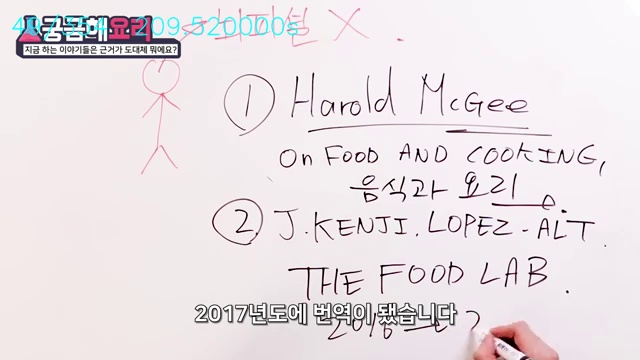 209.520000s
궁금해요리
지금 하는 이야기들은 근거가 도대체 뭐에요?
X.
① Harold McGee
ON FOOD AND COOKING,
음식과 요리.
② J. KENJI. LOPEZ-ALT.
THE FOOD LAB.
2017년도에 번역이 됐습니다